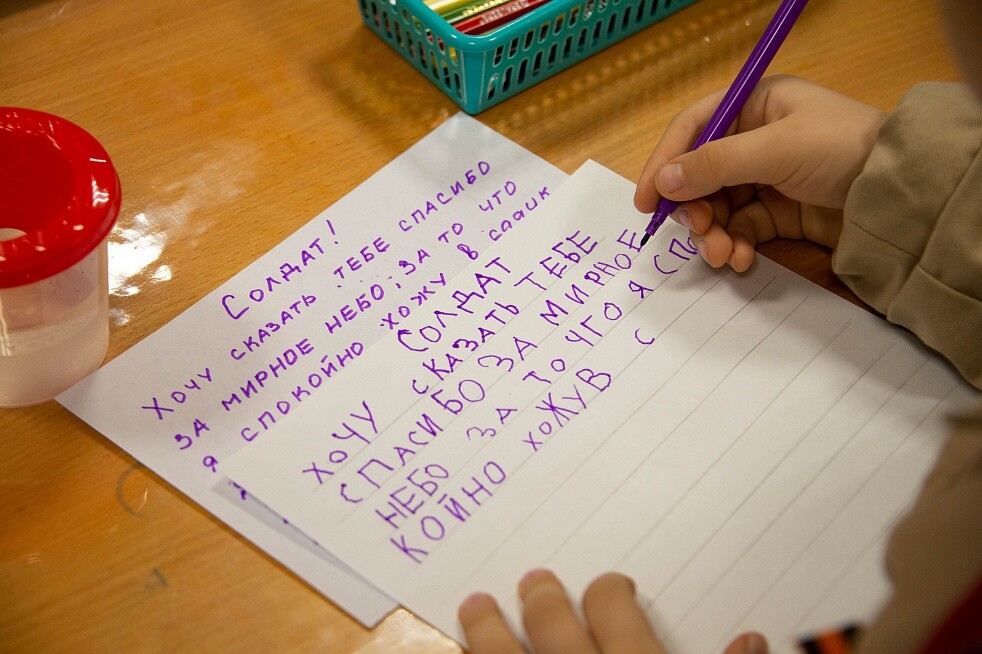 СОЛДАТ!
ХОЧУ СКАЗАТЬ ТЕБЕ СПАСИБО
ЗА МИРНОЕ НЕБО; ЗА ТО ЧТО
Я СПОКОЙНО ХОЖУ В САДИК
СОЛДАТ
ХОЧУ СКАЗАТЬ ТЕБЕ
СПАСИБО ЗА МИРНОЕ
НЕБО ЗА ТО ЧГО Я СПО
КОЙНО ХОЖУВ С